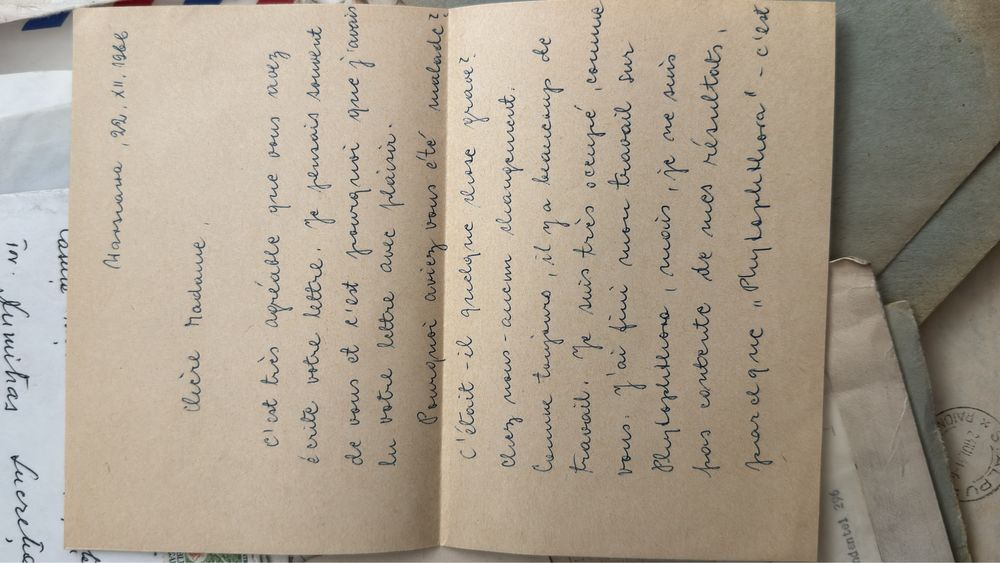 Mamaia, 22. XII. 1966
Chère Madame,
C'est très agréable que vous avez
écrite votre lettre. Je pensais souvent
de vous et c'est pourquoi que j'avais
lu votre lettre avec plaisir.
Pourquoi aviez vous été malade?
C'était-il quelque chose grave?
Chez nous-aucun changement.
Comme toujours, il y a beaucoup de
travail. Je suis très occupé, comme
vous. J'ai fini mon travail sur
Phytophthora, mais, je ne suis
pas contente de mes résultats,
parce que „Phytophthora" - c'est
în. Dumitraș Lucreția
296